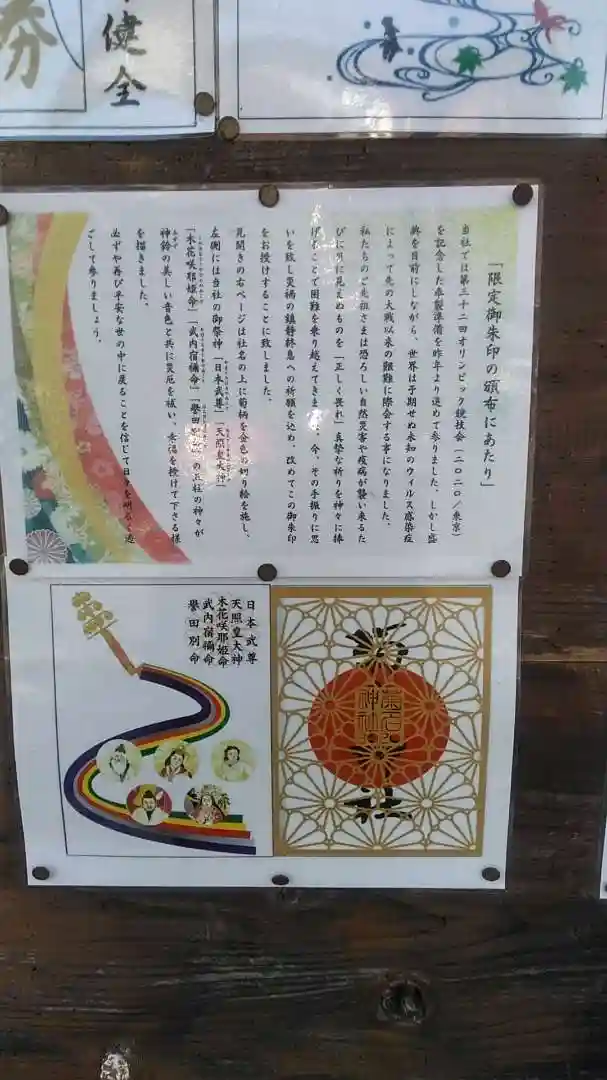 健全
「限定御朱印の頒布にあたり」
当社では第三十二回オリンピック競技会（二〇二〇／東京）
を記念した奉製準備を昨年より進めて参りました。しかし盛
典を目前にしながら、世界は予期せぬ未知のウィルス感染症
によって先の大戦以来の艱難に際会する事になりました。
私たちのご先祖さまは恐ろしい自然災害や疫病が襲い来るた
びに目に見えぬものを「正しく畏れ」真摯な祈りを神々に捧
げることで困難を乗り越えてきました。今、その手振りに思
いを致し災禍の鎮静終息への祈願を込め、改めてこの御朱印
をお授けすることに致しました。
見開きの右ページは社名の上に菊柄を金色の切り絵を施し、
左側には当社の御祭神「日本武尊」「天照皇大神」
「木花咲耶姫命」「武内宿禰命」「譽田別命」の五柱の神々が
神鈴の美しい音色と共に災厄を祓い、幸福を授けて下さる様
を描きました。
必ずや再び平安な世の中に戻ることを信じて日々を明るく過
ごして参りましょう。
日本武尊
天照皇大神
木花咲耶姫命
武内宿禰命
譽田別命
神社